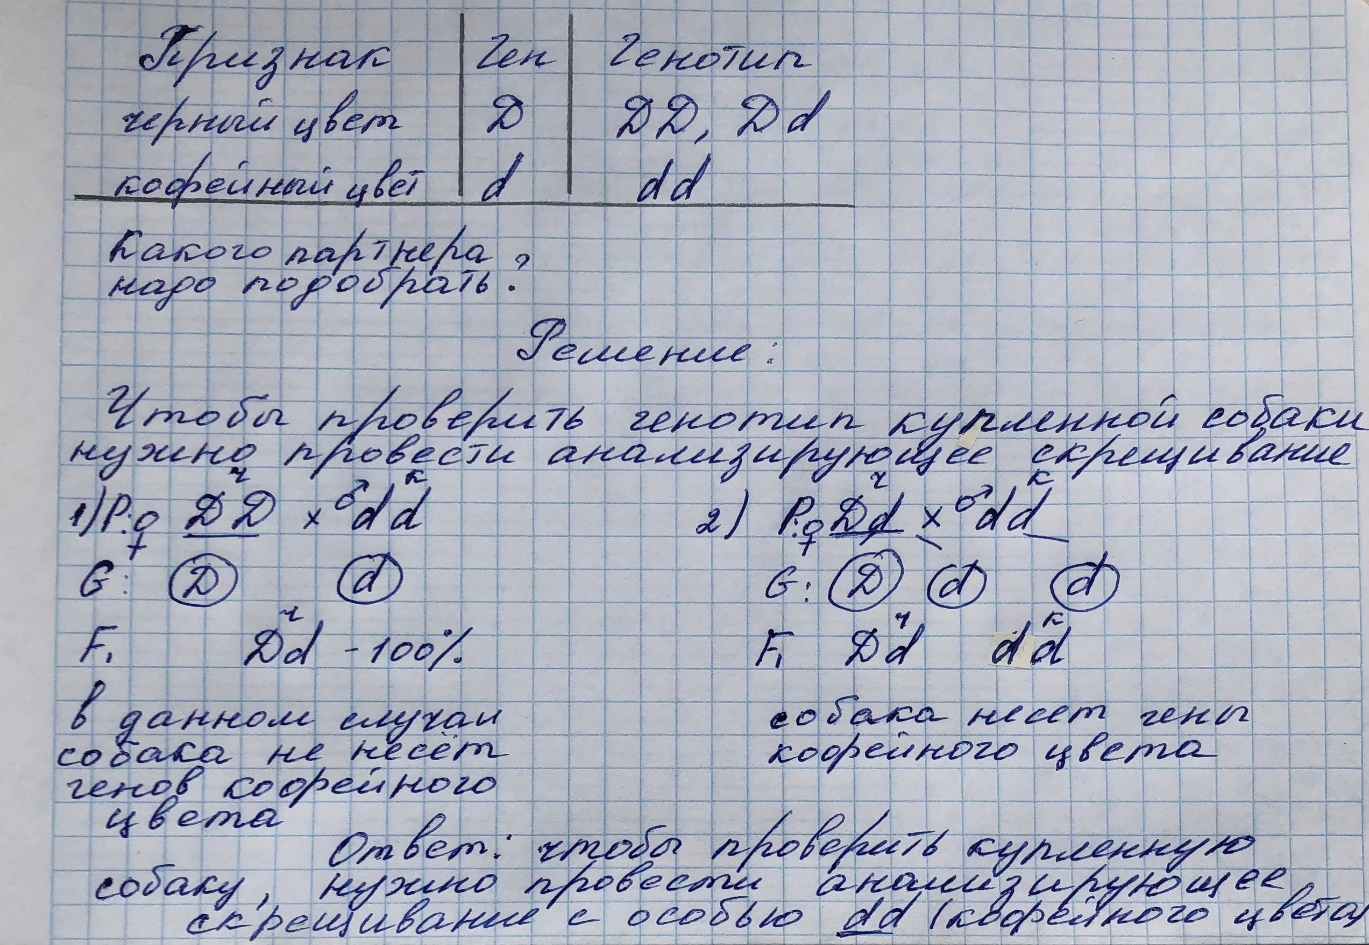 Признак Ген Генотип
черный цвет D DD, Dd
кофейный цвет d dd
Какого партнера
надо подобрать?
Решение:
Чтобы проверить генотип купленной собаки
нужно провести анализирующее скрещивание
ч к ч к
1) P: ♀ DD × ♂ dd 2) P: ♀ Dd × ♂ dd
G: D d G: D d d
ч ч к
F₁ Dd - 100% F₁ Dd dd
в данном случаи собака несет гены
собака не несёт кофейного цвета
генов кофейного
цвета
Ответ: чтобы проверить купленную
собаку, нужно провести анализирующее
скрещивание с особью dd (кофейного цвета)